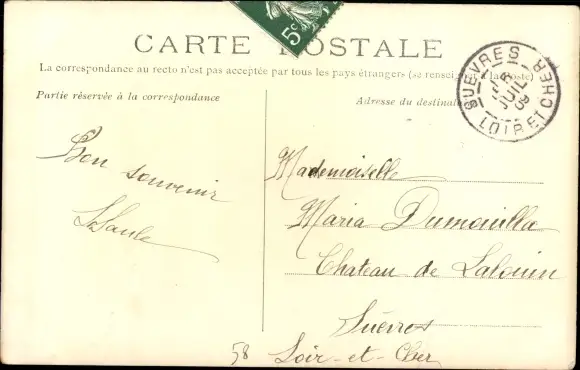 5c
CARTE POSTALE
La correspondance au recto n'est pas acceptée par tous les pays étrangers (se renseigner à la poste)
Partie réservée à la correspondance
Adresse du destinataire
SUÈVRES
8
JUIL
09
LOIR ET CHER
Bon souvenir
Mademoiselle
Maria Dumouilla
Chateau de Lalouin
Suèvres
58
Loir-et-Cher